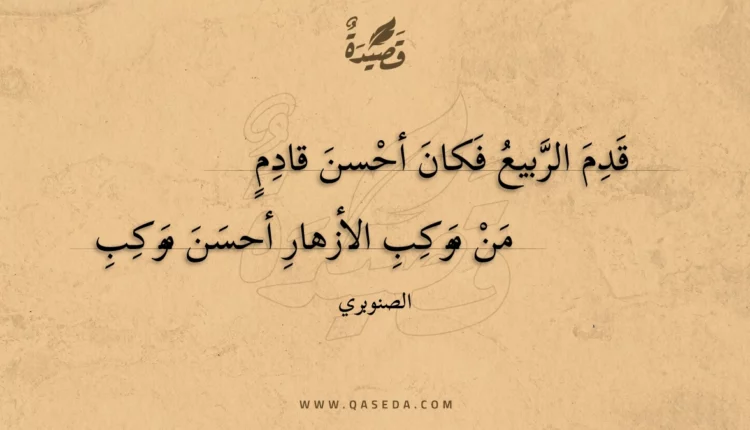 قَصِيدَةٌ
قَدِمَ الرَّبيعُ فَكانَ أحْسنَ قادِمٍ
مَنْ مَوَكِبِ الأزهارِ أحسَنَ مَوَكِبِ
الصنوبري
WWW.QASEDA.COM